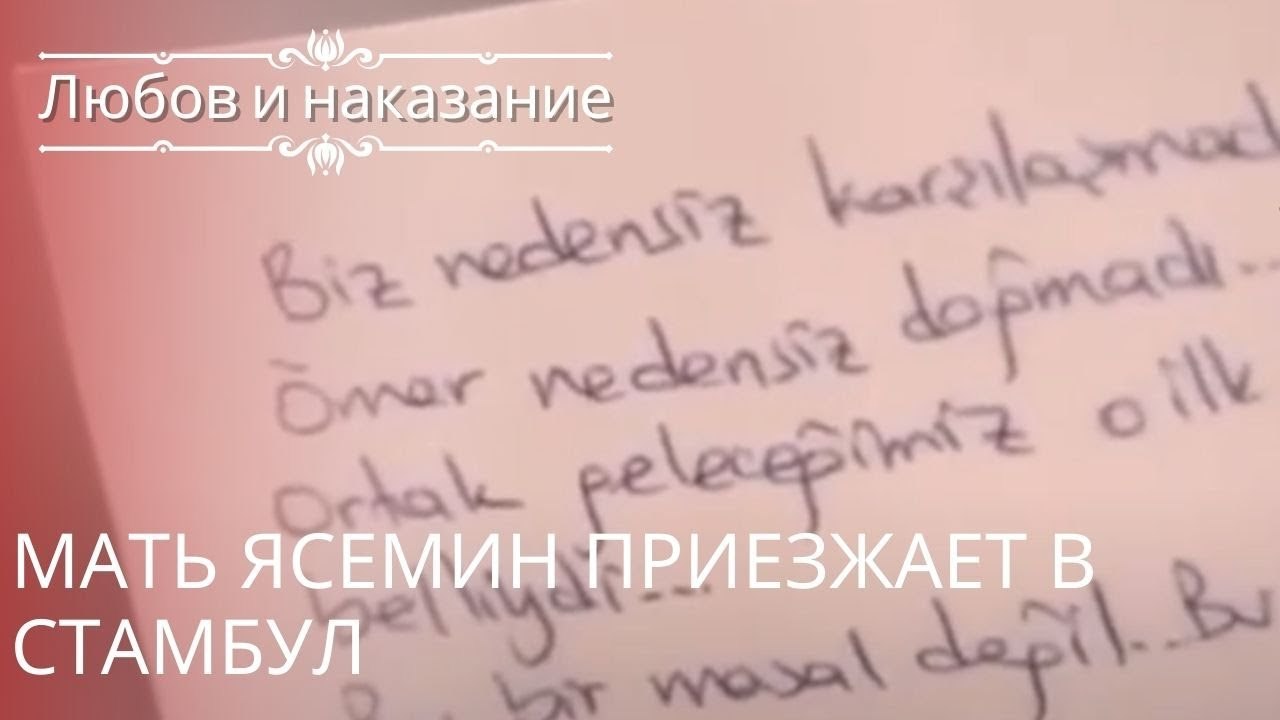 Любов и наказание
Biz nedensiz karşılaşmad
Ömer nedensiz doğmadı...
Ortak geleceğimiz o ilk
belliydi...
bir masal değil...Bu
МАТЬ ЯСЕМИН ПРИЕЗЖАЕТ В
СТАМБУЛ